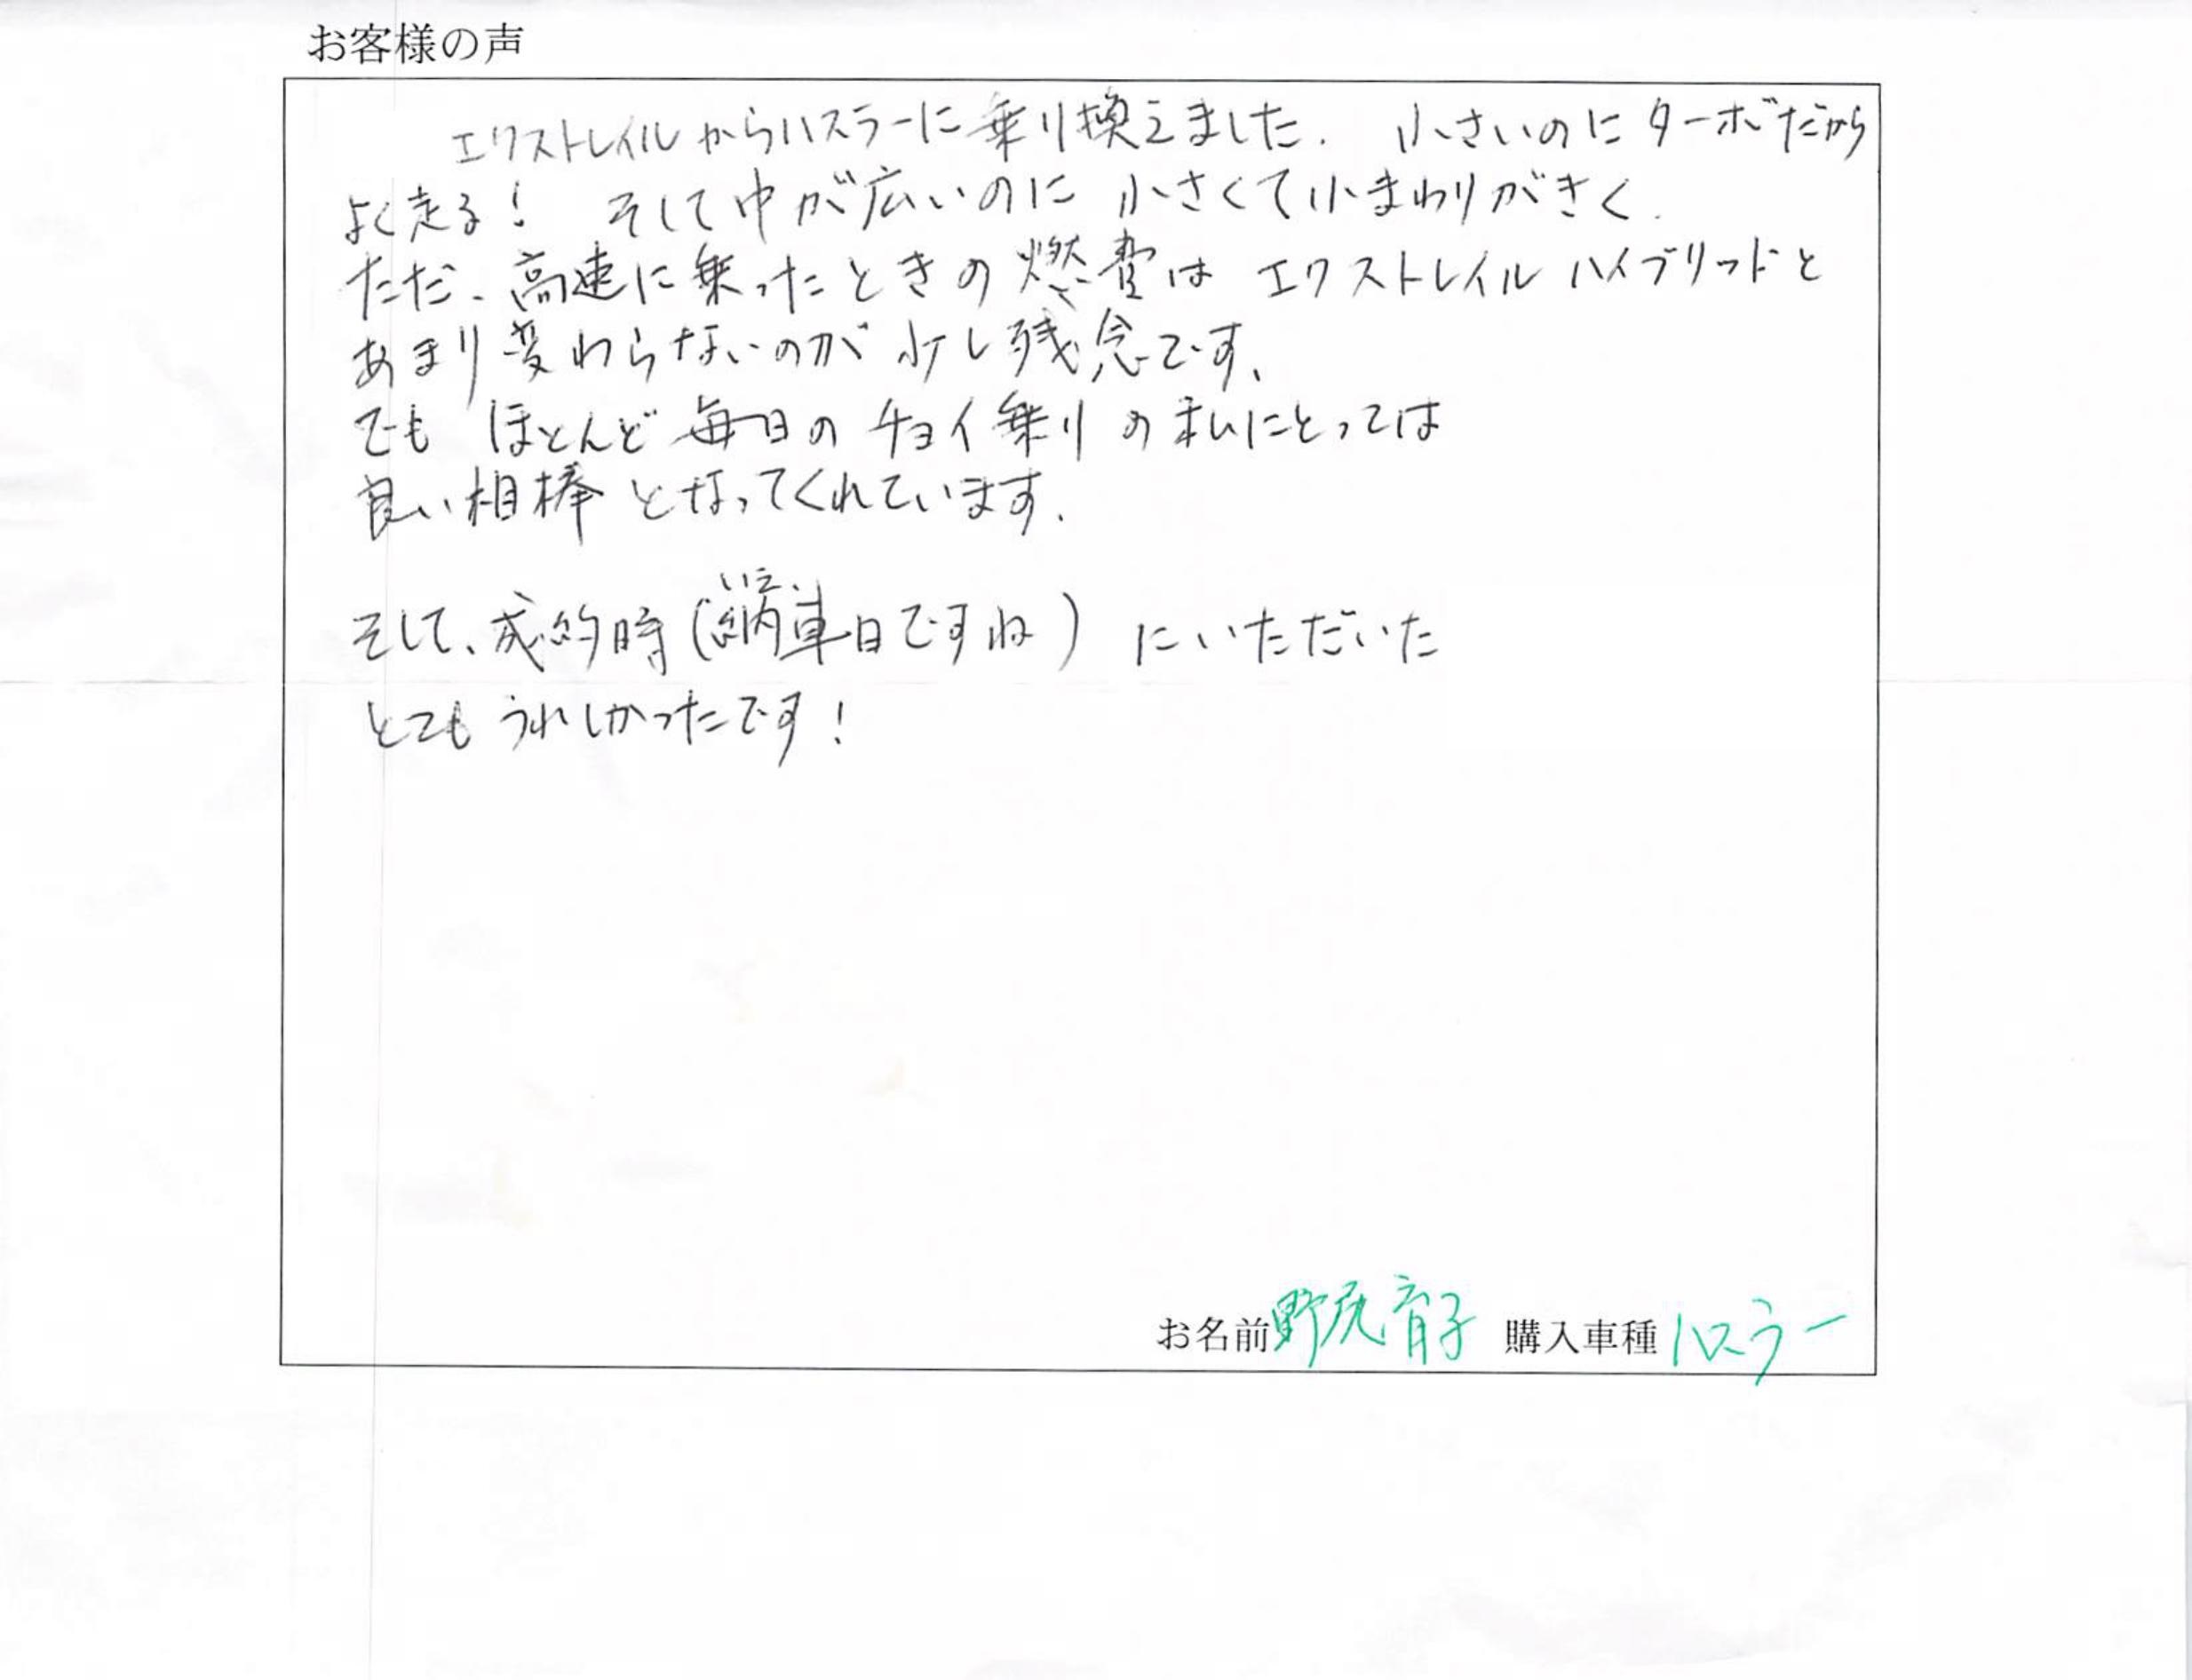 お客様の声
エクストレイルからハスラーに乗り換えました. 小さいのにターボだから
よく走る! そして中が広いのに 小さくて小まわりがきく.
ただ、高速に乗ったときの燃費は エクストレイルハイブリッドと
あまり変わらないのが少し残念です、
でも ほとんど毎日のチョイ乗りの私にとっては
良い相棒となってくれています.
いえ、
そして、成約時(納車日ですね) にいただいた
とてもうれしかったです!
お名前 野尻育子 購入車種 ハスラー